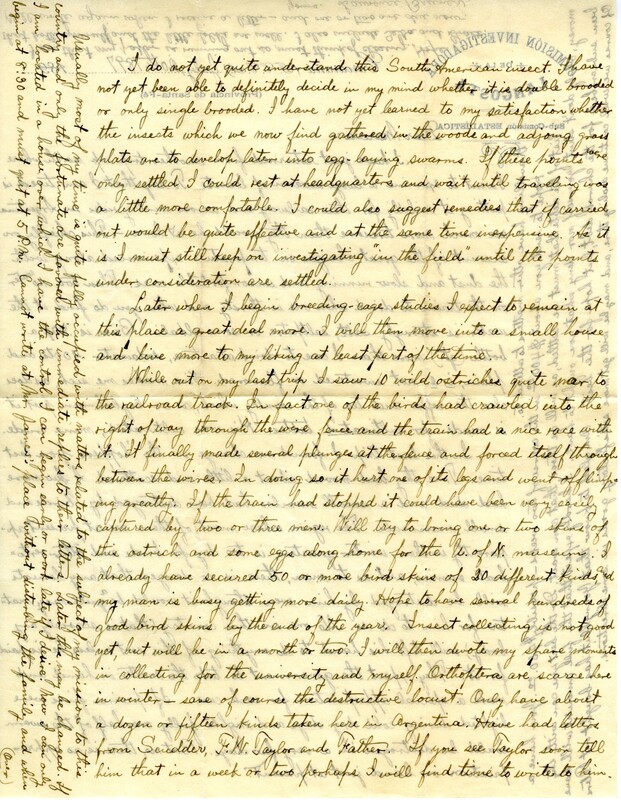 I do not yet quite understand this South American insect. I have
not yet been able to definitily decide in my mind whether it is double brooded
or only single brooded. I have not yet learned to my satisfaction whether
the insects which we now find gathered in the woods and adjoing grass
plats are to develop later into egg-laying swarms. If these points are
only settled I could rest at headquarters and wait until traveling was
a little more comfortable. I could also suggest remedies that if carried
out would be quite effective and at the same time inexpensive. As it
is I must still keep on investigating "in the field" until the points
under consideration are settled.
Later when I begin breeding-cage studies I expect to remain at
this place a great deal more. I will then move into a small house
and live more to my liking at least part of the time.
While out on my last trip I saw 10 wild ostriches quite near to
the railroad track. In fact one of the birds had crawled into the
right of way through the wire fence and the train had a nice race with
it. It finally made several plunges at the fence and forced itself through
between the wires. In doing so it hurt one of its legs and went off limp-
ing greatly. If the train had stopped it could have been very easily
captured by two or three men. Will try to bring one or two skins of
this ostrich and some eggs along home for the U. of N. museum. I
already have secured 50 or more bird skins of 30 different kinds, and
my man is busy getting more daily. Hope to have several hundreds of
good bird skins by the end of the year. Insect collecting is not good
yet, but will be in a month or two. I will then devote my spare moments
in collecting for the university and myself. Orthoptera are scarce here
in winter — save of course the destructive locust. Only have about
a dozen or fifteen kinds taken here in Argentina. Have had letters
from Scudder, F.W. Taylor and Father. If you see Taylor soon tell
him that in a week or two perhaps I will find time to write to him.
Usually most of my time is quite fully occupied with matters related to the subject of my mission to this
country and only the fortunate are favored with immediate replies to their letters. Later this may be changed. If
I am located in a house over which I have the control I can begin early or work late if I desire. Now I can only
begin at 8:30 and must quit at 5 P.M. Cannot write at Mr. place without disturbing the family and when
(Over)
COMISIÓN INVESTIGADORA
(Provincia de Santa-Fé)